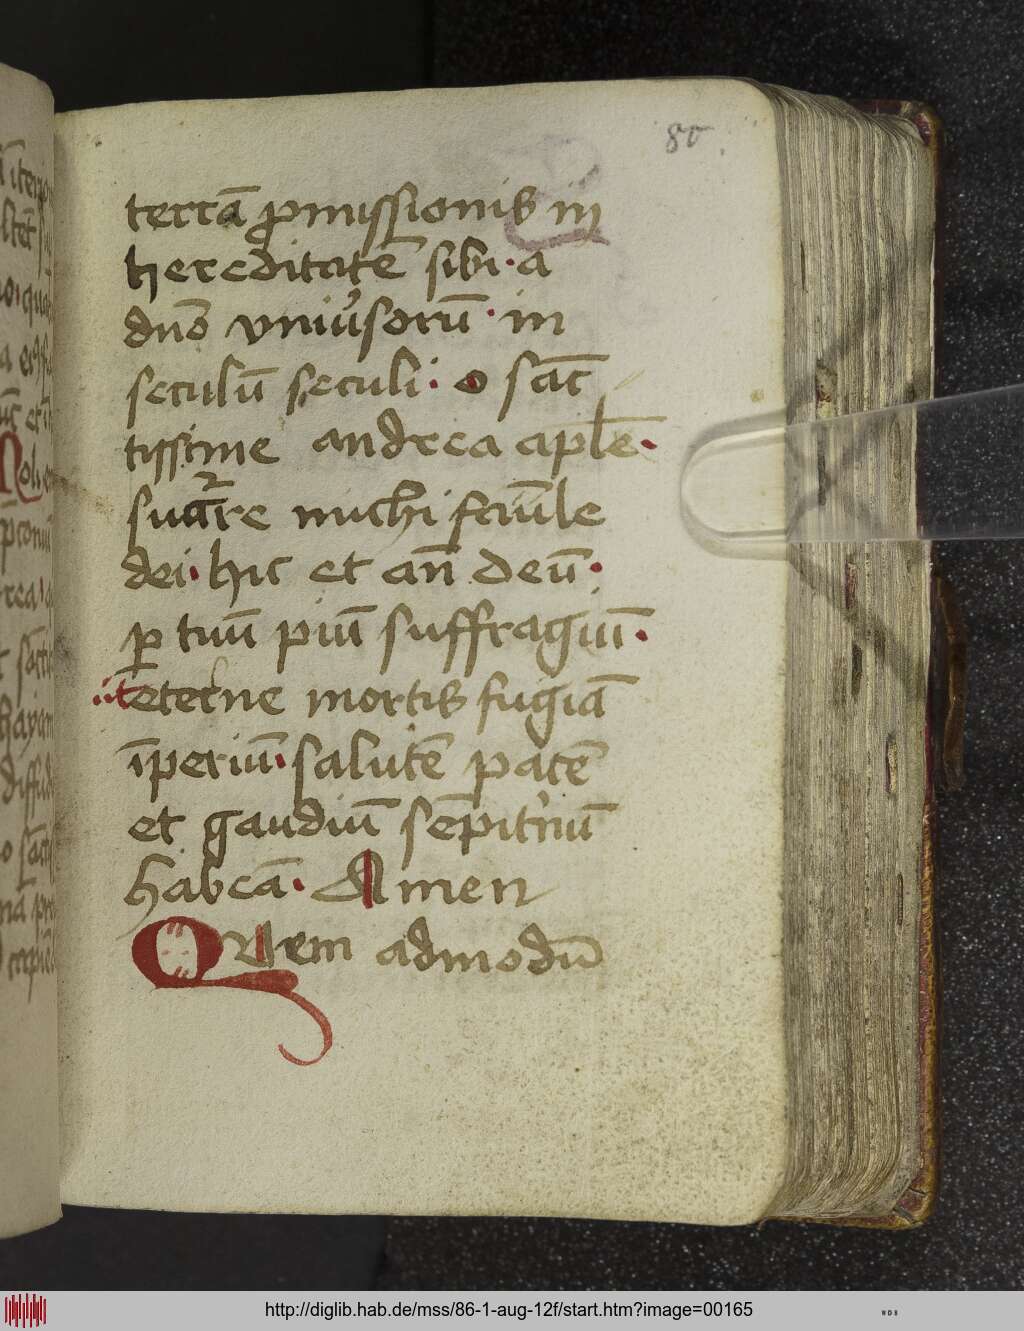 80.
terrā ꝓmissionis in
hereditatē sibi · a
dño vniu̾sorū · in
seculū seculi · o sāc
tissime andrea apl̄e ·
sucr̄re michi famule
dei · hic et an̄ deū ·
ꝑ tuū piū suffragiū ·
ut eterne mortis fugiā
īperiū · salutē patē
et gaudiū sēpit̾nū
habeā · Amen
Quem admodū
http://diglib.hab.de/mss/86-1-aug-12f/start.htm?image=00165